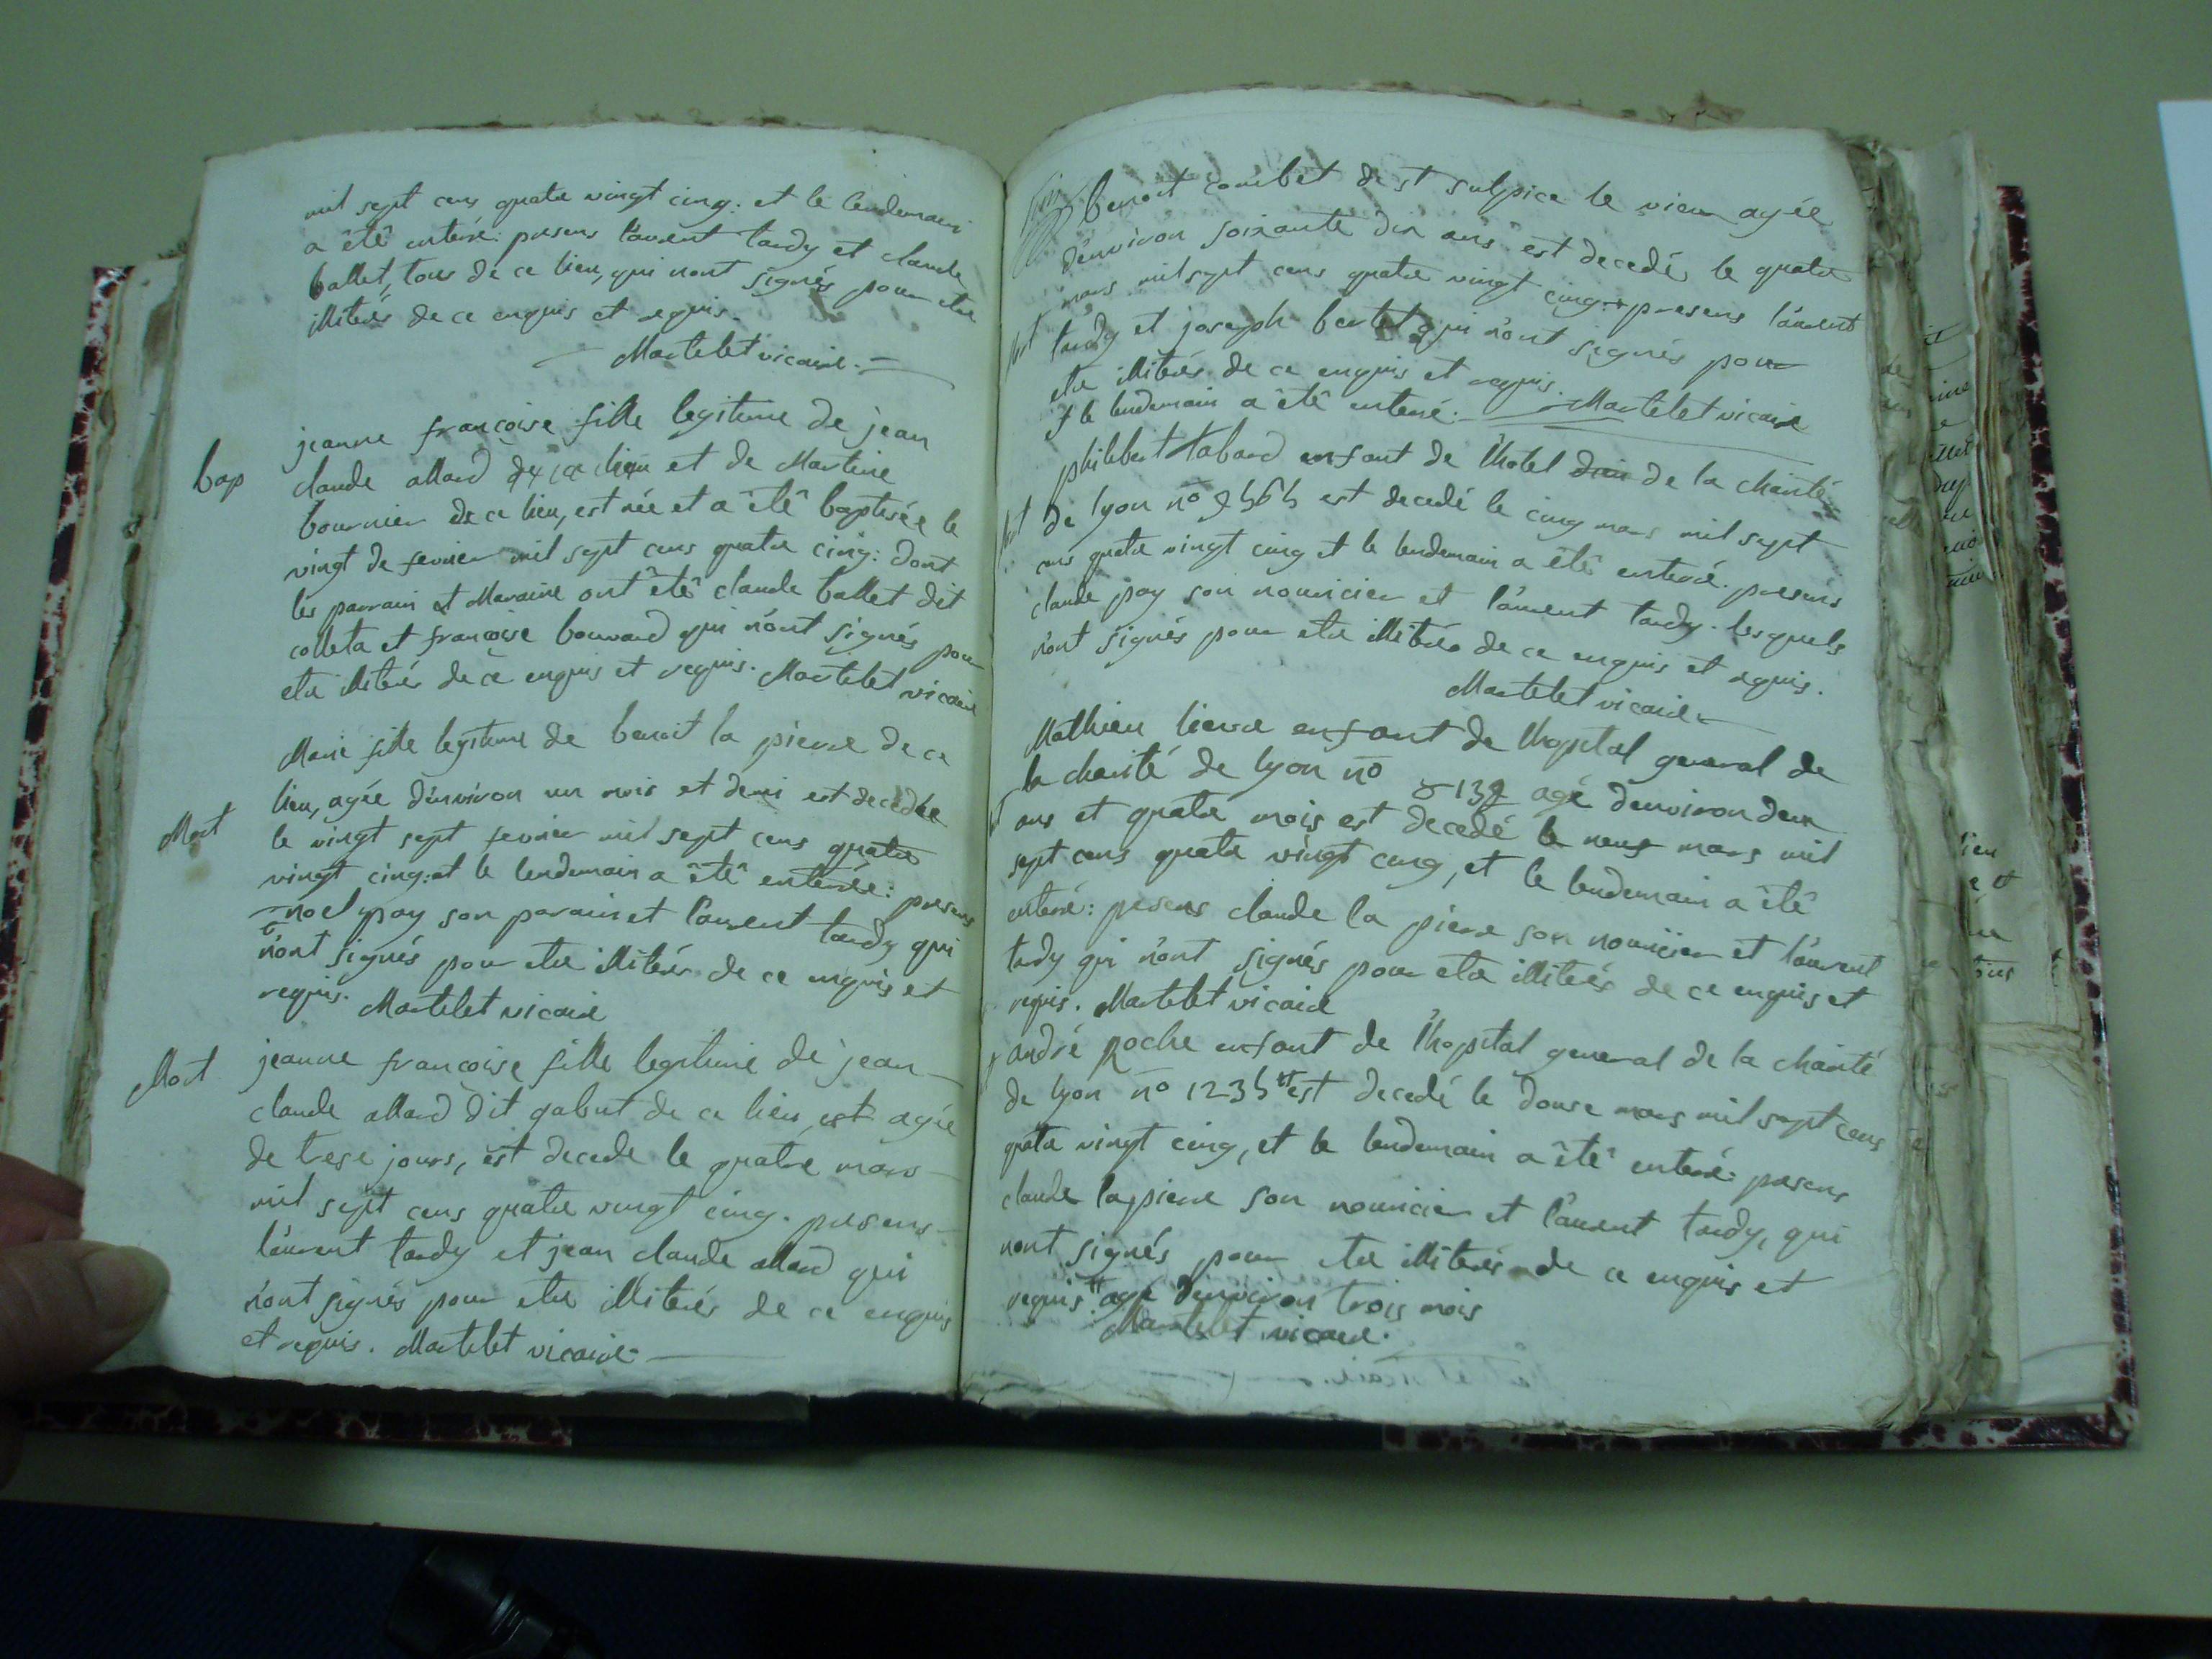 mil sept cens quatre vingt cinq: et le lendemain
a êtê enterré: presens laurent tardy et claude
ballet, tous de ce lieu, qui nont signés pour etre
illiterés de ce enquis et requis.
Martelet vicaire.
jeanne françoise fille legitime de jean
bap
claude allard de ce lieu et de Martine
bournier de ce lieu, est née et a êtê baptisée le
vingt de fevrier mil sept cens quatre cinq: dont
les parrain et Maraine ont êtê claude ballet dit
colleta et françoise bouvard qui n'ont signés pour
etre illiterés de ce enquis et requis. Martelet vicaire
Marie fille legitime de benoit la pierre de ce
lieu, agée d'environ un mois et demi est decedée
Mort
le vingt sept fevrier mil sept cens quatre
vingt cinq: et le lendemain a êtê enterrée: presens
noel pay son parain et laurent tardy qui
n'ont signés pour etre illiterés de ce enquis et
requis. Martelet vicaire
Mort
jeanne françoise fille legitime de jean
claude allard dit galut de ce lieu, est agée
de trese jours, est decede le quatre mars
mil sept cens quatre vingt cinq. presens
laurent tardy et jean claude allard qui
n'ont signés pour etre illiterés de ce enquis
et requis. Martelet vicaire
benoit combet de st sulpice le vieux agée
d'environ soixante dix ans est decedé le quatre
mars mil sept cens quatre vingt cinq + presens laurent
tardy et joseph bertet qui n'ont signés pour
etre illiterés de ce enquis et requis. Martelet vicaire
+ le lendemain a êtê enterré.
philibert tabard enfant de l'hotel de la charité
de lyon no est decedé le cinq mars mil sept
cens quatre vingt cinq et le lendemain a êtê enterré. presens
claude pay son nouricier et laurent tardy. lesquels
n'ont signés pour etre illiterés de ce enquis et requis.
Martelet vicaire
Mathieu lievre enfant de l'hopital general de
la charité de lyon no agé d'environ deux
ans et quatre mois est decedé le neuf mars mil
sept cens quatre vingt cinq, et le lendemain a êtê
enterré: presens claude la pierre son nouricier et laurent
tardy qui n'ont signés pour etre illiterés de ce enquis et
requis. Martelet vicaire
andré poche enfant de l'hopital general de la charité
de lyon no est decedé le douse mars mil sept cens
quatre vingt cinq, et le lendemain a êtê enterré: presens
claude lapierre son nouricier et laurent tardy, qui
nont signés pour etre illiterés de ce enquis et
requis. agé d'environ trois mois
Martelet vicaire.